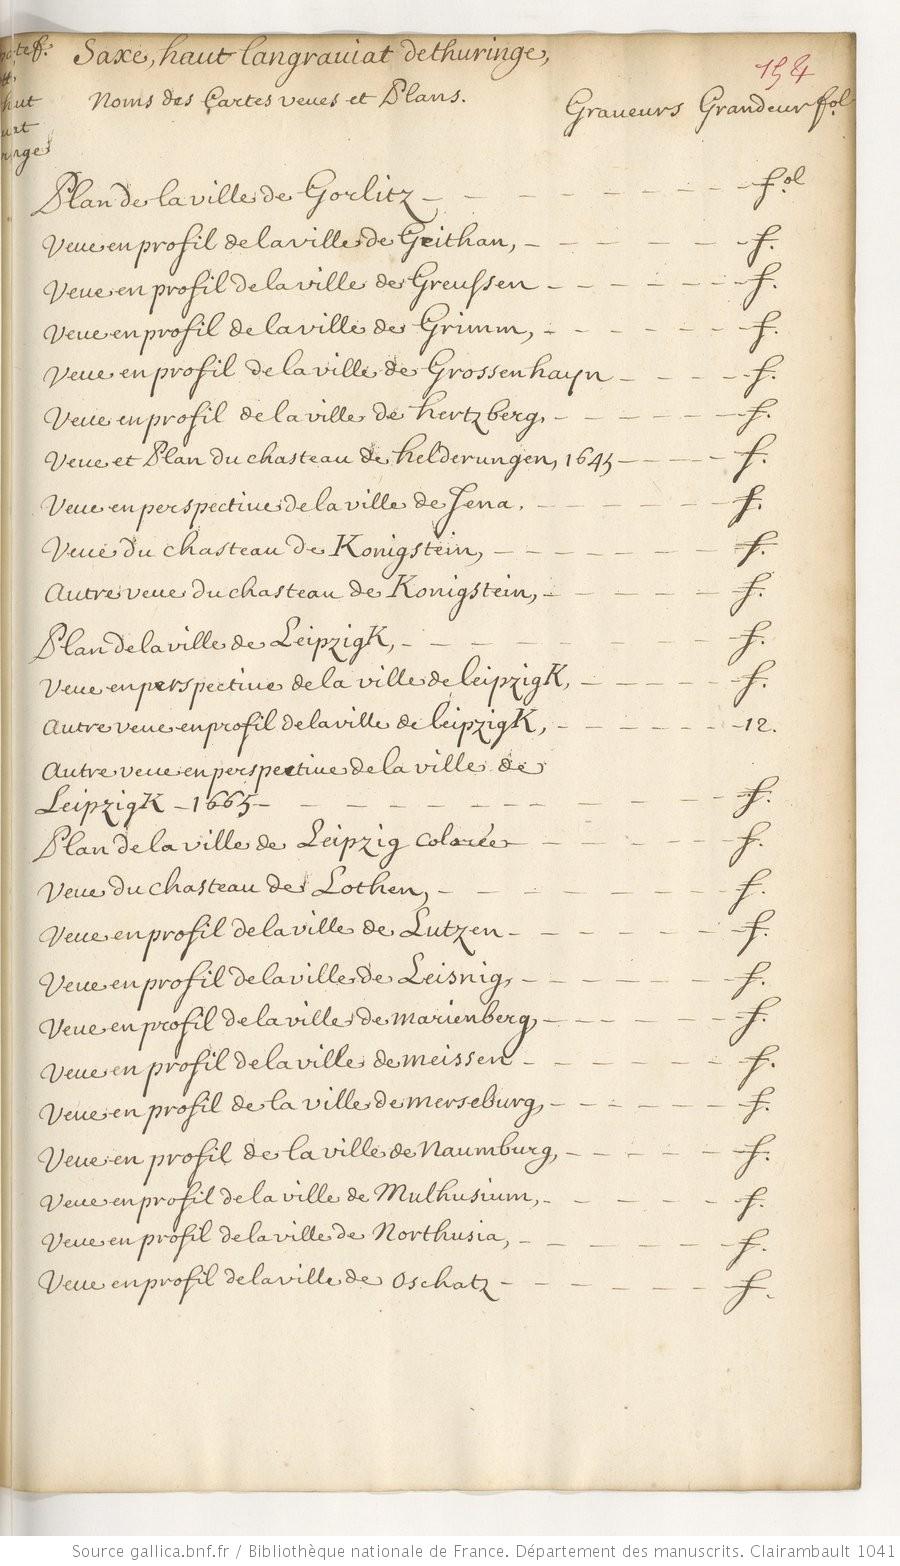 Saxe, haut langraviat de thuringe,
154
Noms des Cartes veues et Plans.
Graveurs Grandeur fol
hut
Plan de la ville de Gorlitz - - - - - - - - - fol
Veue en profil de la ville de Geithan, - - - - - - f.
Veue en profil de la ville de Greussen - - - - - - f.
Veue en profil de la ville de Grimm, - - - - - - f.
Veue en profil de la ville de Grossenhayn - - - - f.
Veue en profil de la ville de hertzberg, - - - - - - f.
Veue et Plan du chasteau de helderungen, 1645 - - - - f.
Veue en perspective de la ville de Jena. - - - - - - f.
Veue du chasteau de Konigstein, - - - - - - - f.
Autre veue du chasteau de Konigstein, - - - - - - f.
Plan de la ville de LeipzigK, - - - - - - - - f.
Veue en perspective de la ville de leipzigK, - - - - - f.
Autre veue en profil de la ville de leipzigK, - - - - - 12.
Autre veue en perspective de la ville de
LeipzigK - 1665 - - - - - - - - - - - f.
Plan de la ville de Leipzig colorée - - - - - - f.
Veue du chasteau de Lothen, - - - - - - - - f.
Veue en profil de la ville de Lutzen - - - - - - - f.
Veue en profil de la ville de Leisnig, - - - - - - f.
Veue en profil de la ville de marienberg, - - - - - - f.
Veue en profil de la ville de meissen - - - - - - f.
Veue en profil de la ville de merseburg, - - - - - - f.
Veue en profil de la ville de Naumburg, - - - - - - f.
Veue en profil de la ville de Mulhusium, - - - - - f.
Veue en profil de la ville de Northusia, - - - - - f.
Veue en profil de la ville de Oschatz - - - - - - f.
Source gallica.bnf.fr / Bibliothèque nationale de France. Département des manuscrits. Clairambault 1041